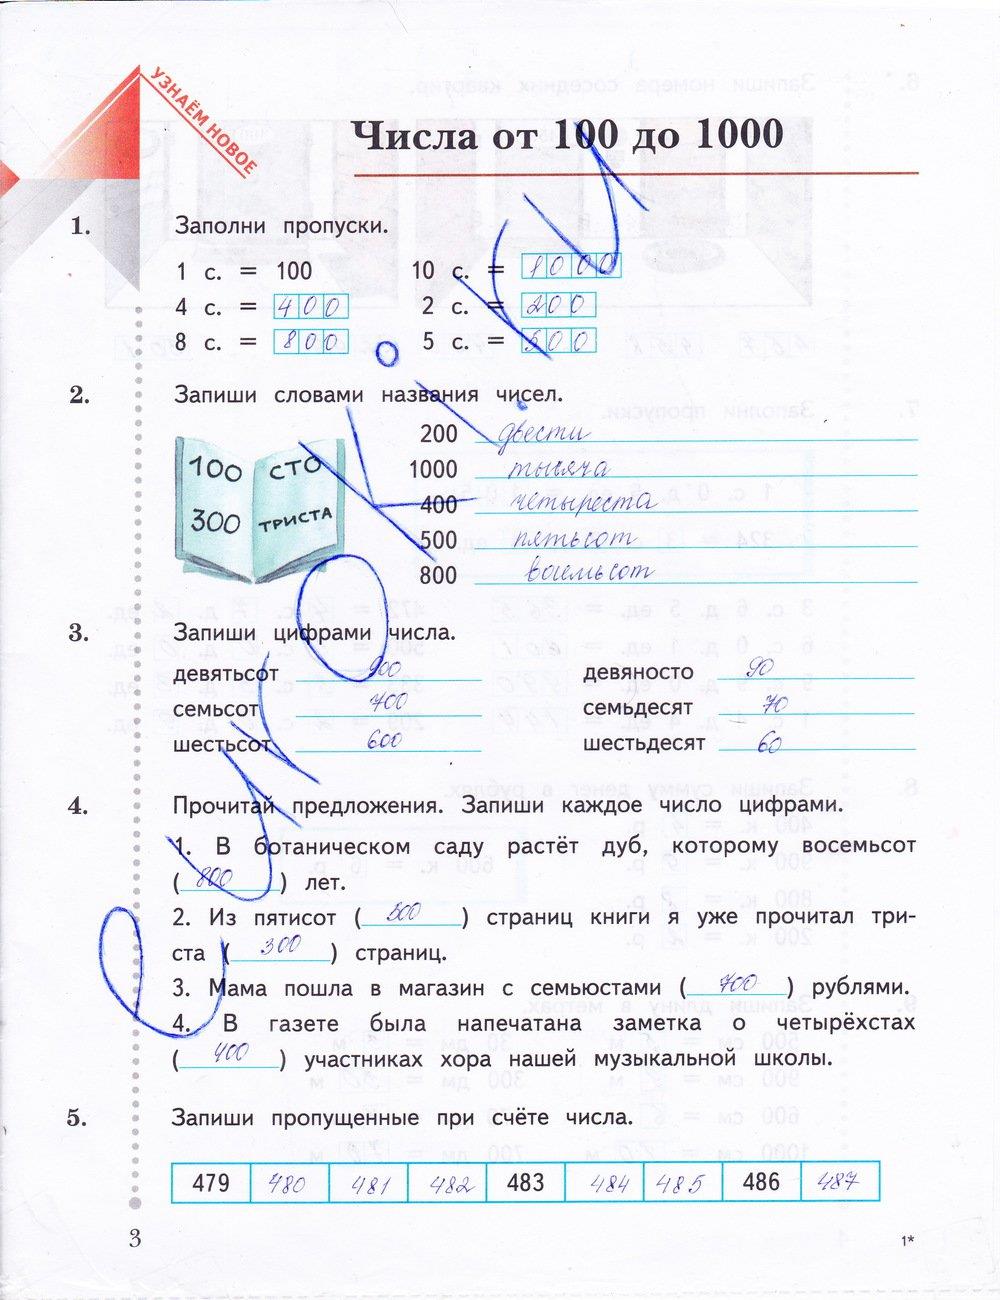 УЗНАЁМ НОВОЕ
Числа от 100 до 1000
1. Заполни пропуски.
1 с. = 100 10 с. = 1000
4 с. = 400 2 с. = 200
8 с. = 800 5 с. = 500
2. Запиши словами названия чисел.
100 СТО
300 ТРИСТА
200 двести
1000 тысяча
400 четыреста
500 пятьсот
800 восемьсот
3. Запиши цифрами числа.
девятьсот 900 девяносто 90
семьсот 700 семьдесят 70
шестьсот 600 шестьдесят 60
4. Прочитай предложения. Запиши каждое число цифрами.
1. В ботаническом саду растёт дуб, которому восемьсот
( 800 ) лет.
2. Из пятисот ( 500 ) страниц книги я уже прочитал три-
ста ( 300 ) страниц.
3. Мама пошла в магазин с семьюстами ( 700 ) рублями.
4. В газете была напечатана заметка о четырёхстах
( 400 ) участниках хора нашей музыкальной школы.
5. Запиши пропущенные при счёте числа.
479 480 481 482 483 484 485 486 487
3 1*